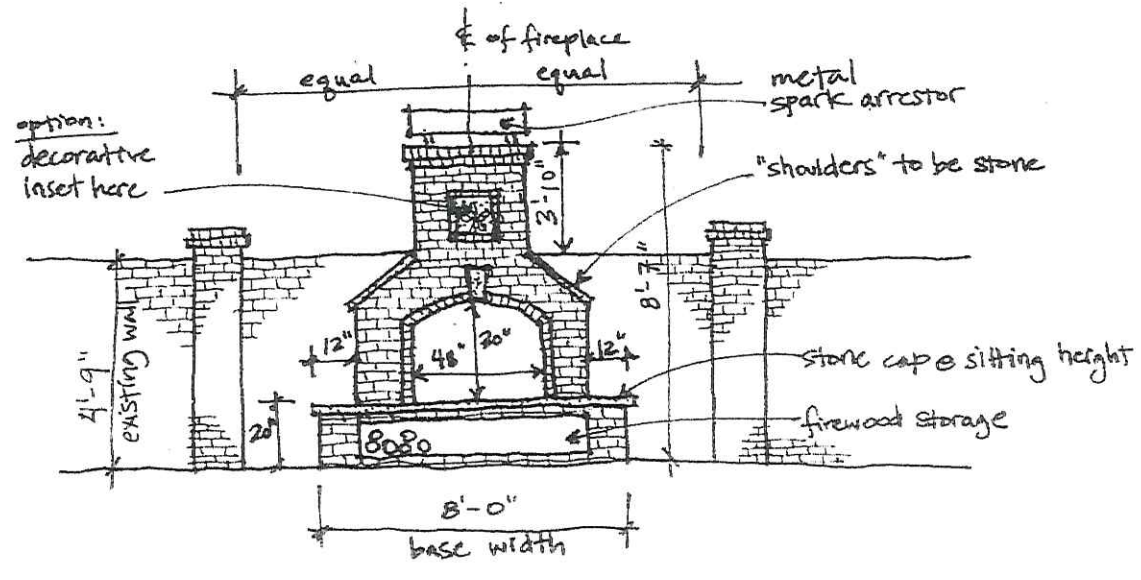 ℄ of fireplace
equal equal
metal
spark arrestor
option:
decorative
inset here
"shoulders" to be stone
3'-10"
8'-7"
12" 48" 30" 12"
4'-9"
existing wall
20"
stone cap @ sitting height
firewood storage
8'-0"
base width